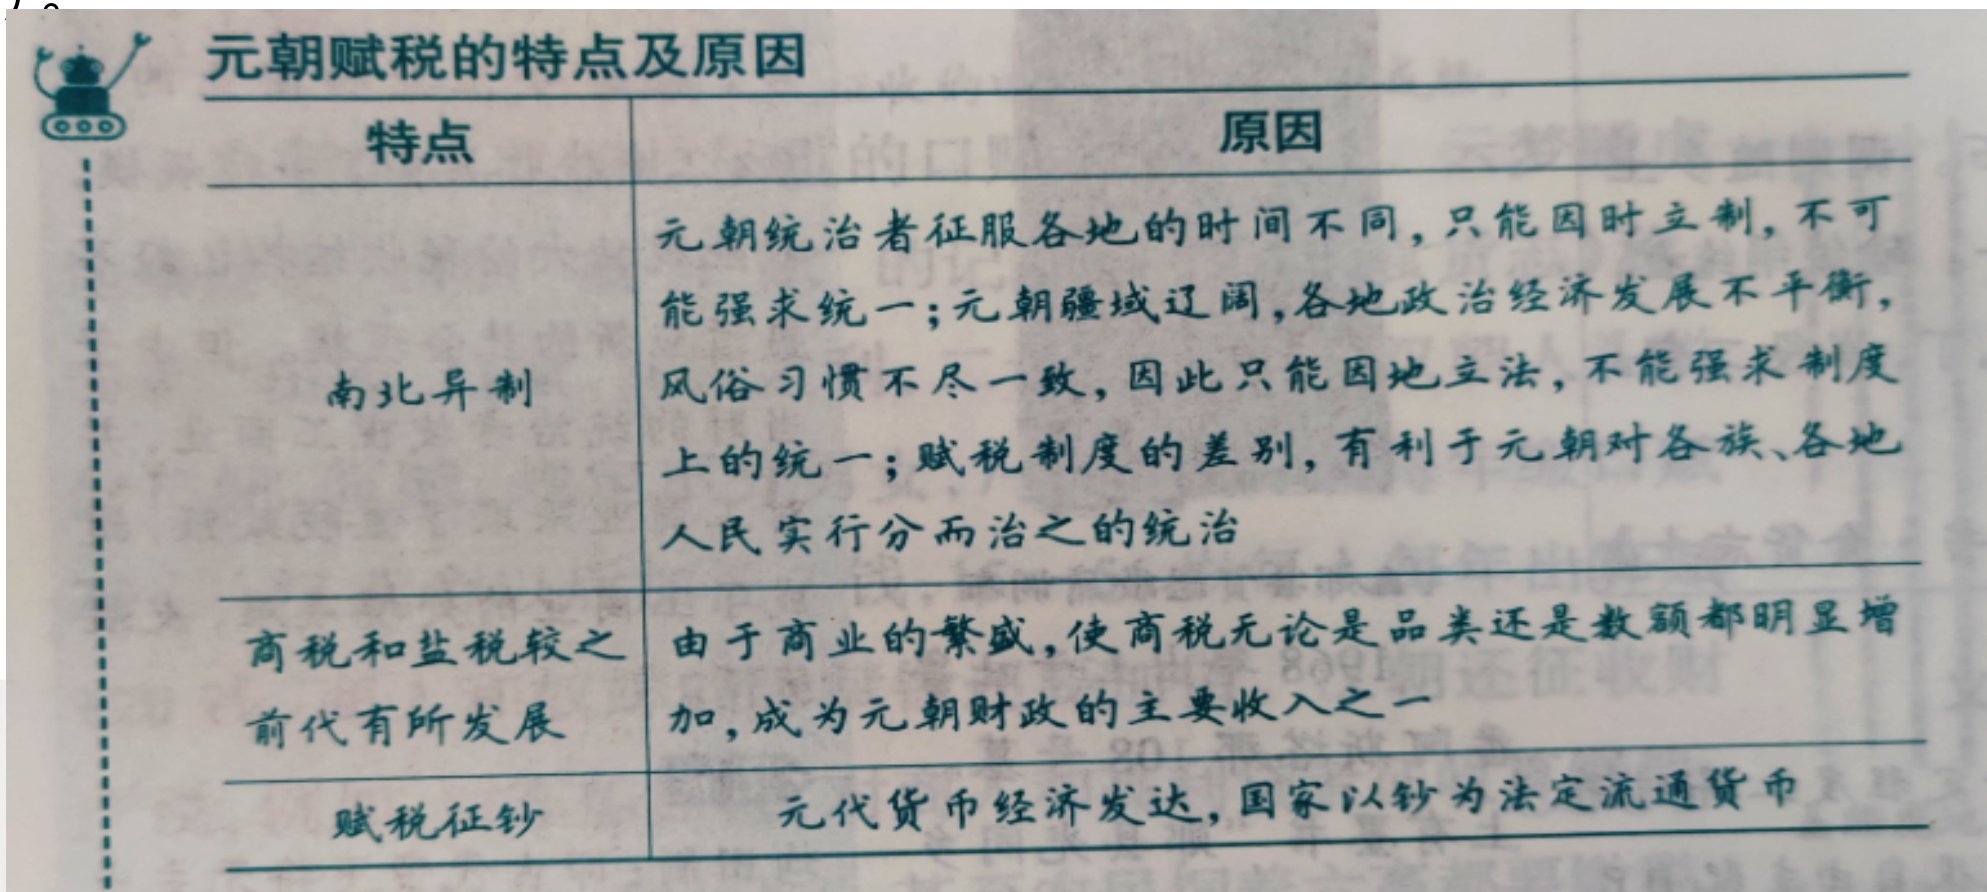 元朝赋税的特点及原因
特点
原因
南北异制
元朝统治者征服各地的时间不同，只能因时立制，不可
能强求统一；元朝疆域辽阔，各地政治经济发展不平衡，
风俗习惯不尽一致，因此只能因地立法，不能强求制度
上的统一；赋税制度的差别，有利于元朝对各族、各地
人民实行分而治之的统治
商税和盐税较之
前代有所发展
由于商业的繁盛，使商税无论是品类还是数额都明显增
加，成为元朝财政的主要收入之一
赋税征钞
元代货币经济发达，国家以钞为法定流通货币